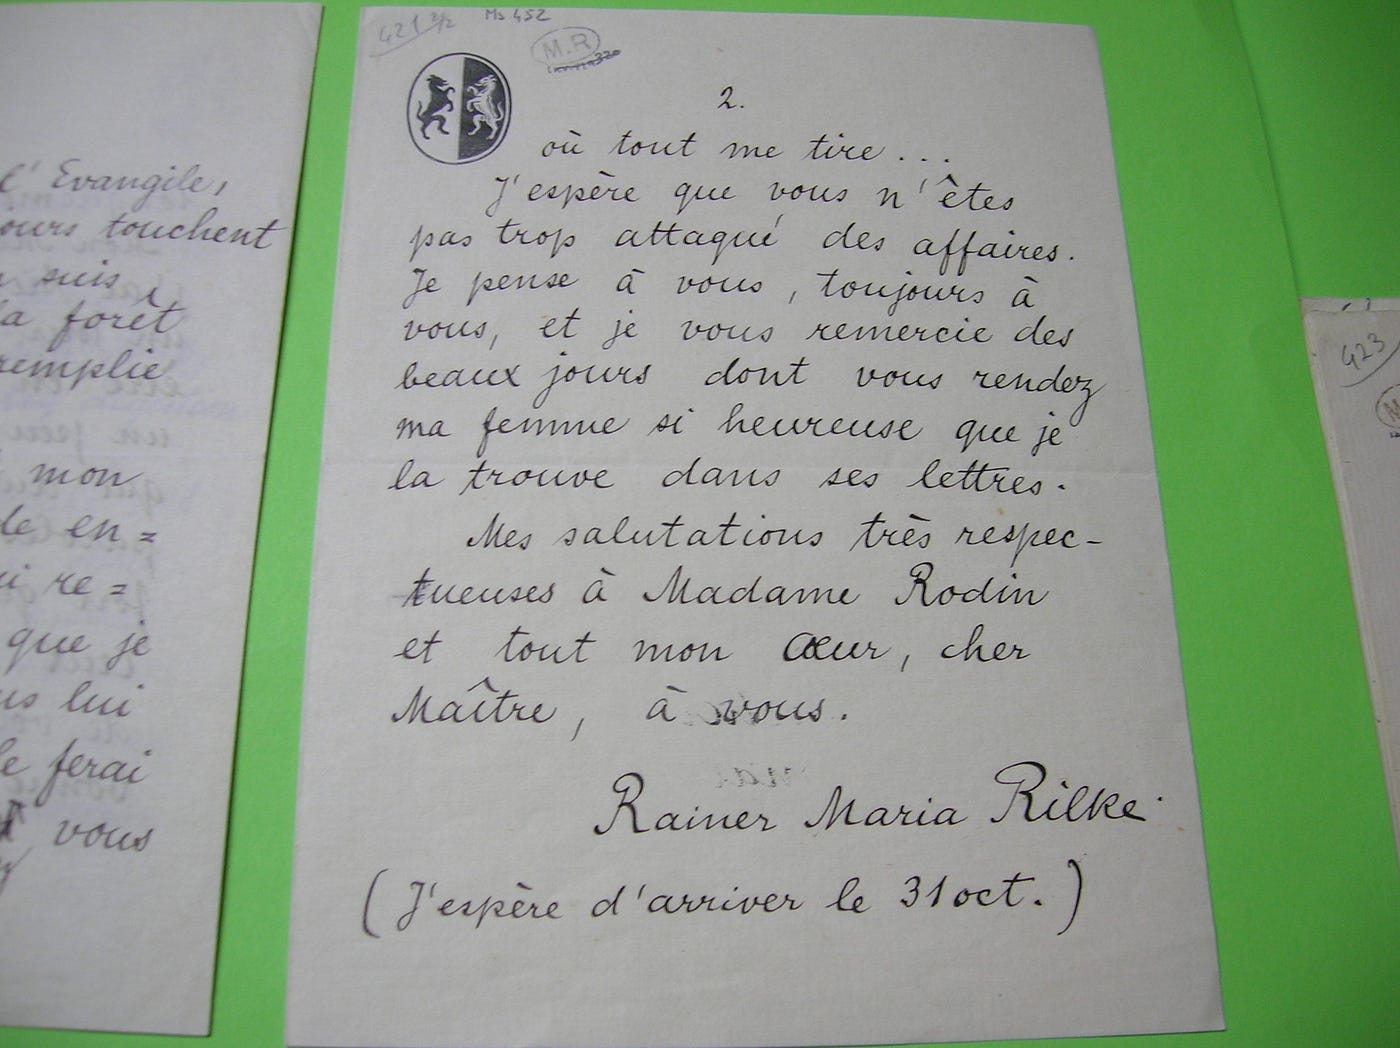 l'Evangile,
ours touchent
suis
la forêt
remplie
mon
de en=
re=
que je
lui
le ferai
vous
421 2/2
Ms 452
M.R
2.
où tout me tire...
J'espère que vous n'êtes
pas trop attaqué des affaires.
Je pense à vous, toujours à
vous, et je vous remercie des
beaux jours dont vous rendez
ma femme si heureuse que je
la trouve dans ses lettres.
Mes salutations très respec-
tueuses à Madame Rodin
et tout mon cœur, cher
Maître, à vous.
Rainer Maria Rilke.
(J'espère d'arriver le 31 oct.)
423